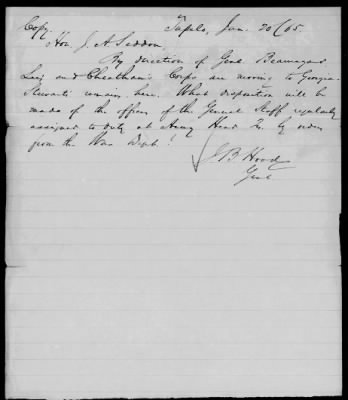 Copy. Tupelo, Jan. 20/65
Hon. J. A. Seddon,
By direction of Genl Beauregard
Lee's and Cheatham's Corps are moving to Georgia.
Stewart's remains here. What disposition will be
made of the officers of the General Staff regularly
assigned to duty at Army Head Qr. by orders
from the War Dept?
J. B. Hood
Genl